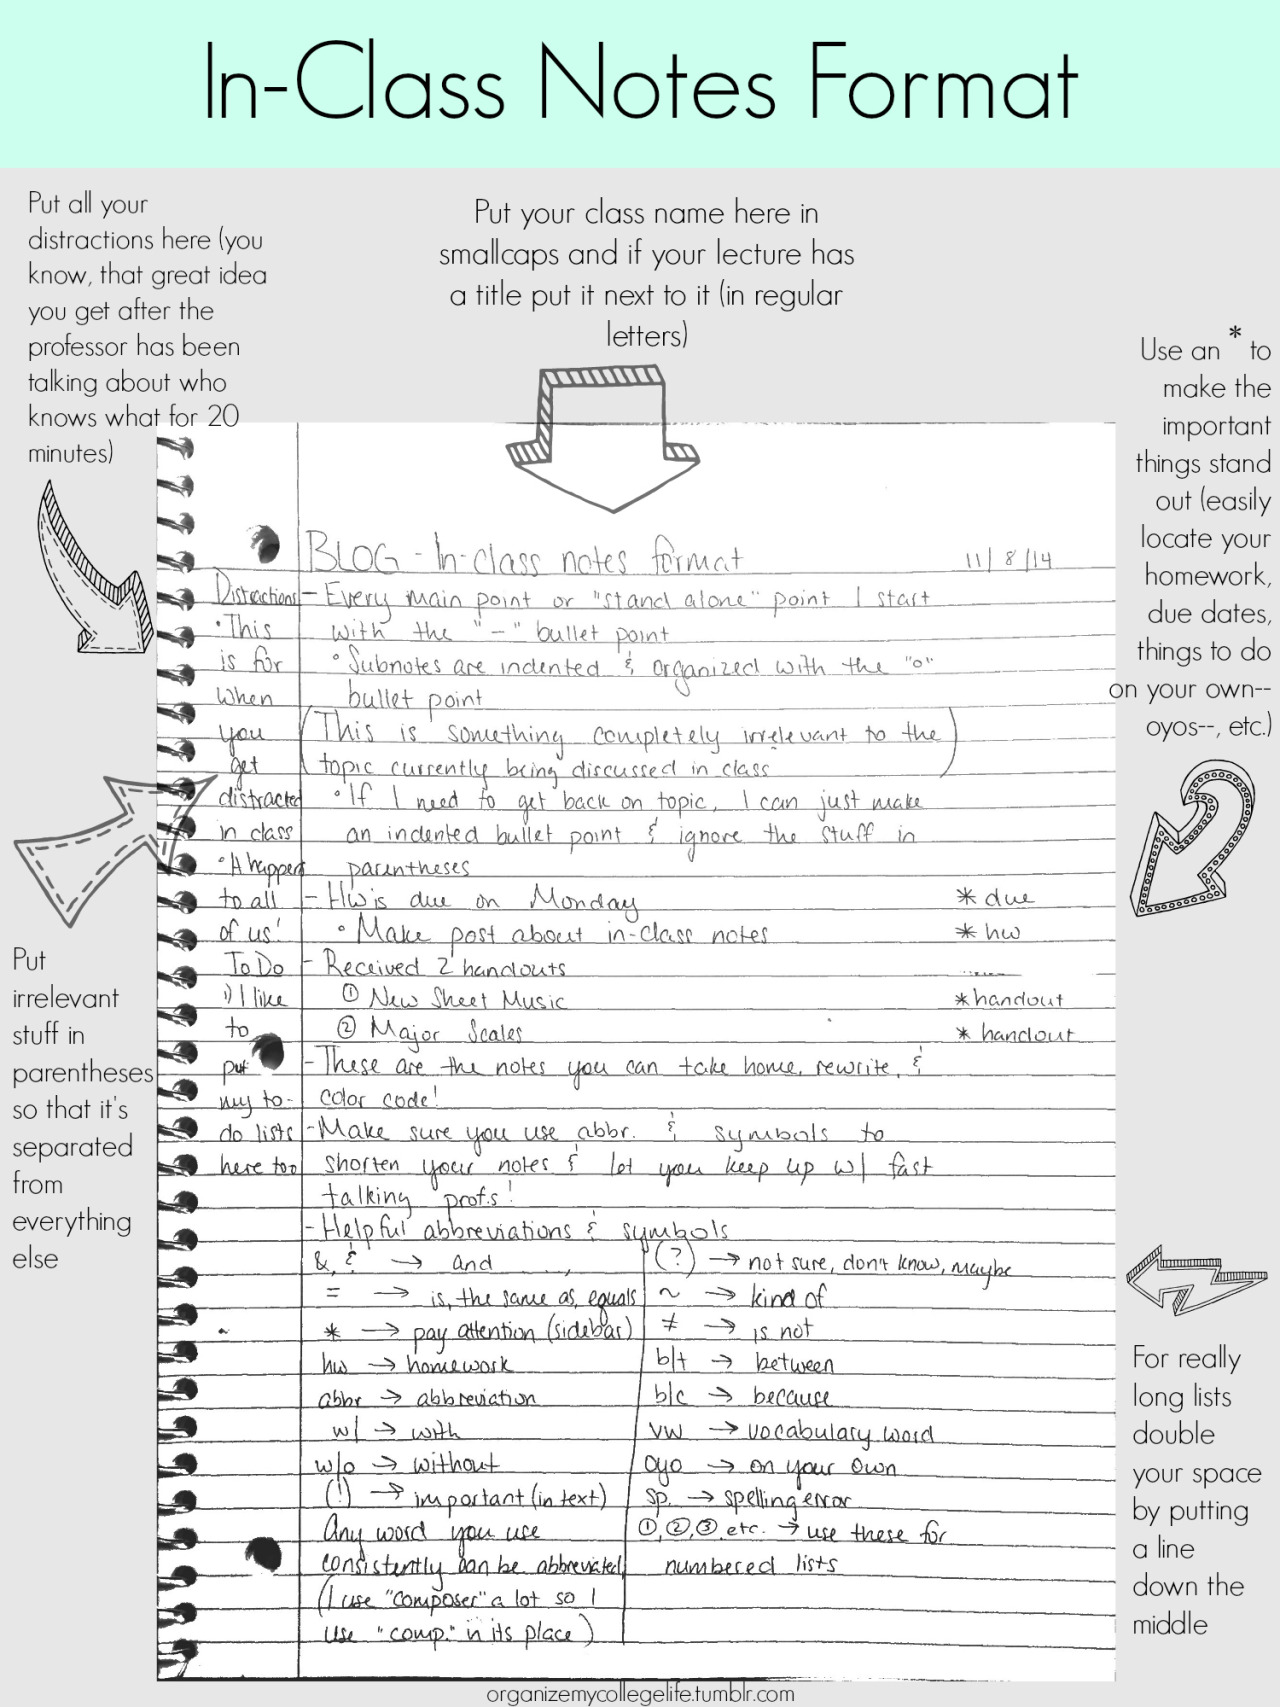 In-Class Notes Format
Put all your
distractions here (you
know, that great idea
you get after the
professor has been
talking about who
knows what for 20
minutes)
Put your class name here in
smallcaps and if your lecture has
a title put it next to it (in regular
letters)
Use an * to
make the
important
things stand
out (easily
locate your
homework,
due dates,
things to do
on your own--
oyos--, etc.)
BLOG - In-class notes format 11/8/14
Distractions
• This
is for
when
you
get
distracted
in class
• It happens
to all
of us!
To Do
1) I like
to
put
my to-
do lists
here too
- Every main point or "stand alone" point I start
with the "-" bullet point
° Subnotes are indented & organized with the "o"
bullet point
(This is something completely irrelevant to the
topic currently being discussed in class)
° If I need to get back on topic, I can just make
an indented bullet point & ignore the stuff in
parentheses
- HW is due on Monday * due
° Make post about in-class notes * hw
- Received 2 handouts
① New Sheet Music * handout
② Major Scales * handout
- These are the notes you can take home, rewrite, &
color code!
- Make sure you use abbr. & symbols to
shorten your notes & let you keep up w/ fast
talking profs!
- Helpful abbreviations & symbols
&, & → and
= → is, the same as, equals
* → pay attention (sidebar)
hw → homework
abbr → abbreviation
w/ → with
w/o → without
(!) → important (in text)
Any word you use
consistently can be abbreviated
(I use "composer" a lot so I
use "comp." in its place)
(?) → not sure, don't know, maybe
~ → kind of
≠ → is not
b/t → between
b/c → because
vw → vocabulary word
oyo → on your own
sp. → spelling error
①, ②, ③, etc. → use these for
numbered lists
Put
irrelevant
stuff in
parentheses
so that it's
separated
from
everything
else
For really
long lists
double
your space
by putting
a line
down the
middle
organizemycollegelife.tumblr.com